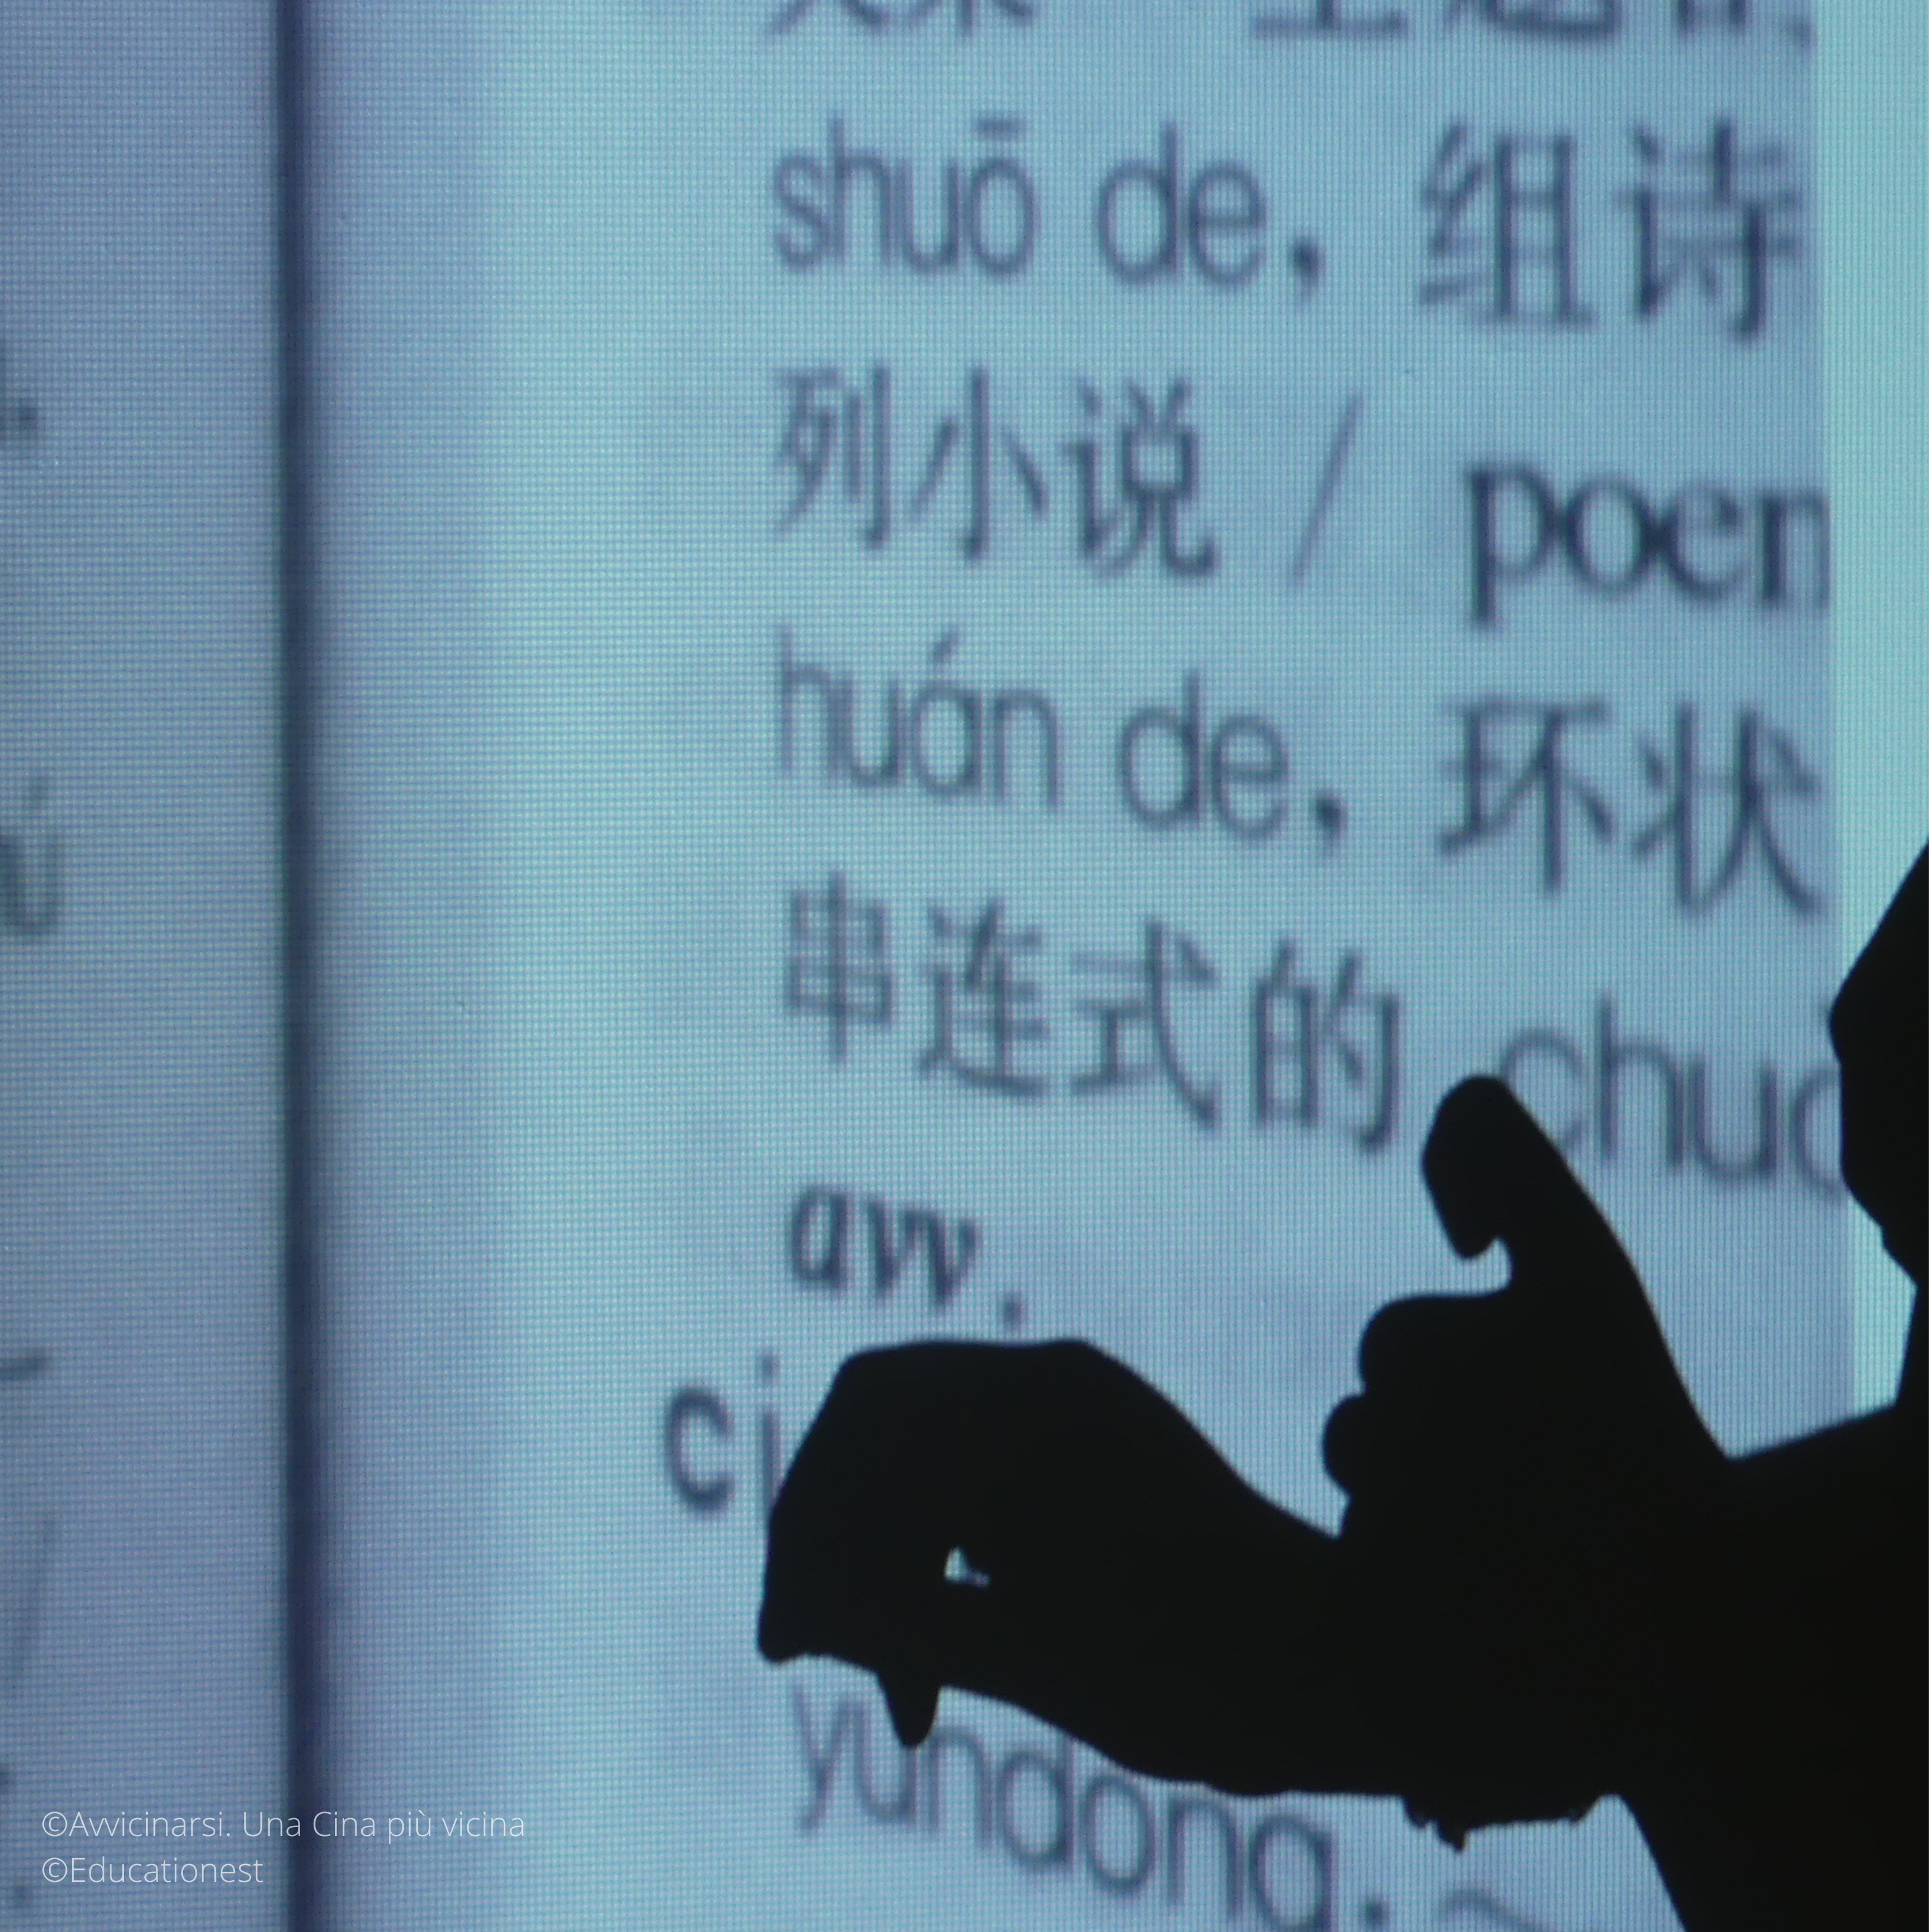 shuō de, 组诗
列小说 / poen
huán de, 环状
串连式的 chuo
avv.
ci
yundong. ~
©Avvicinarsi. Una Cina più vicina
©Educationest